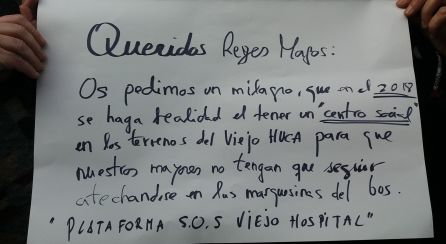 Queridos Reyes Magos:
Os pedimos un milagro, que en el 2018
se haga realidad el tener un "centro social"
en los terrenos del Viejo HUCA para que
nuestros mayores no tengan que seguir
atechandose en las marquesinas del bos.
"PLATAFORMA S.O.S VIEJO HOSPITAL"